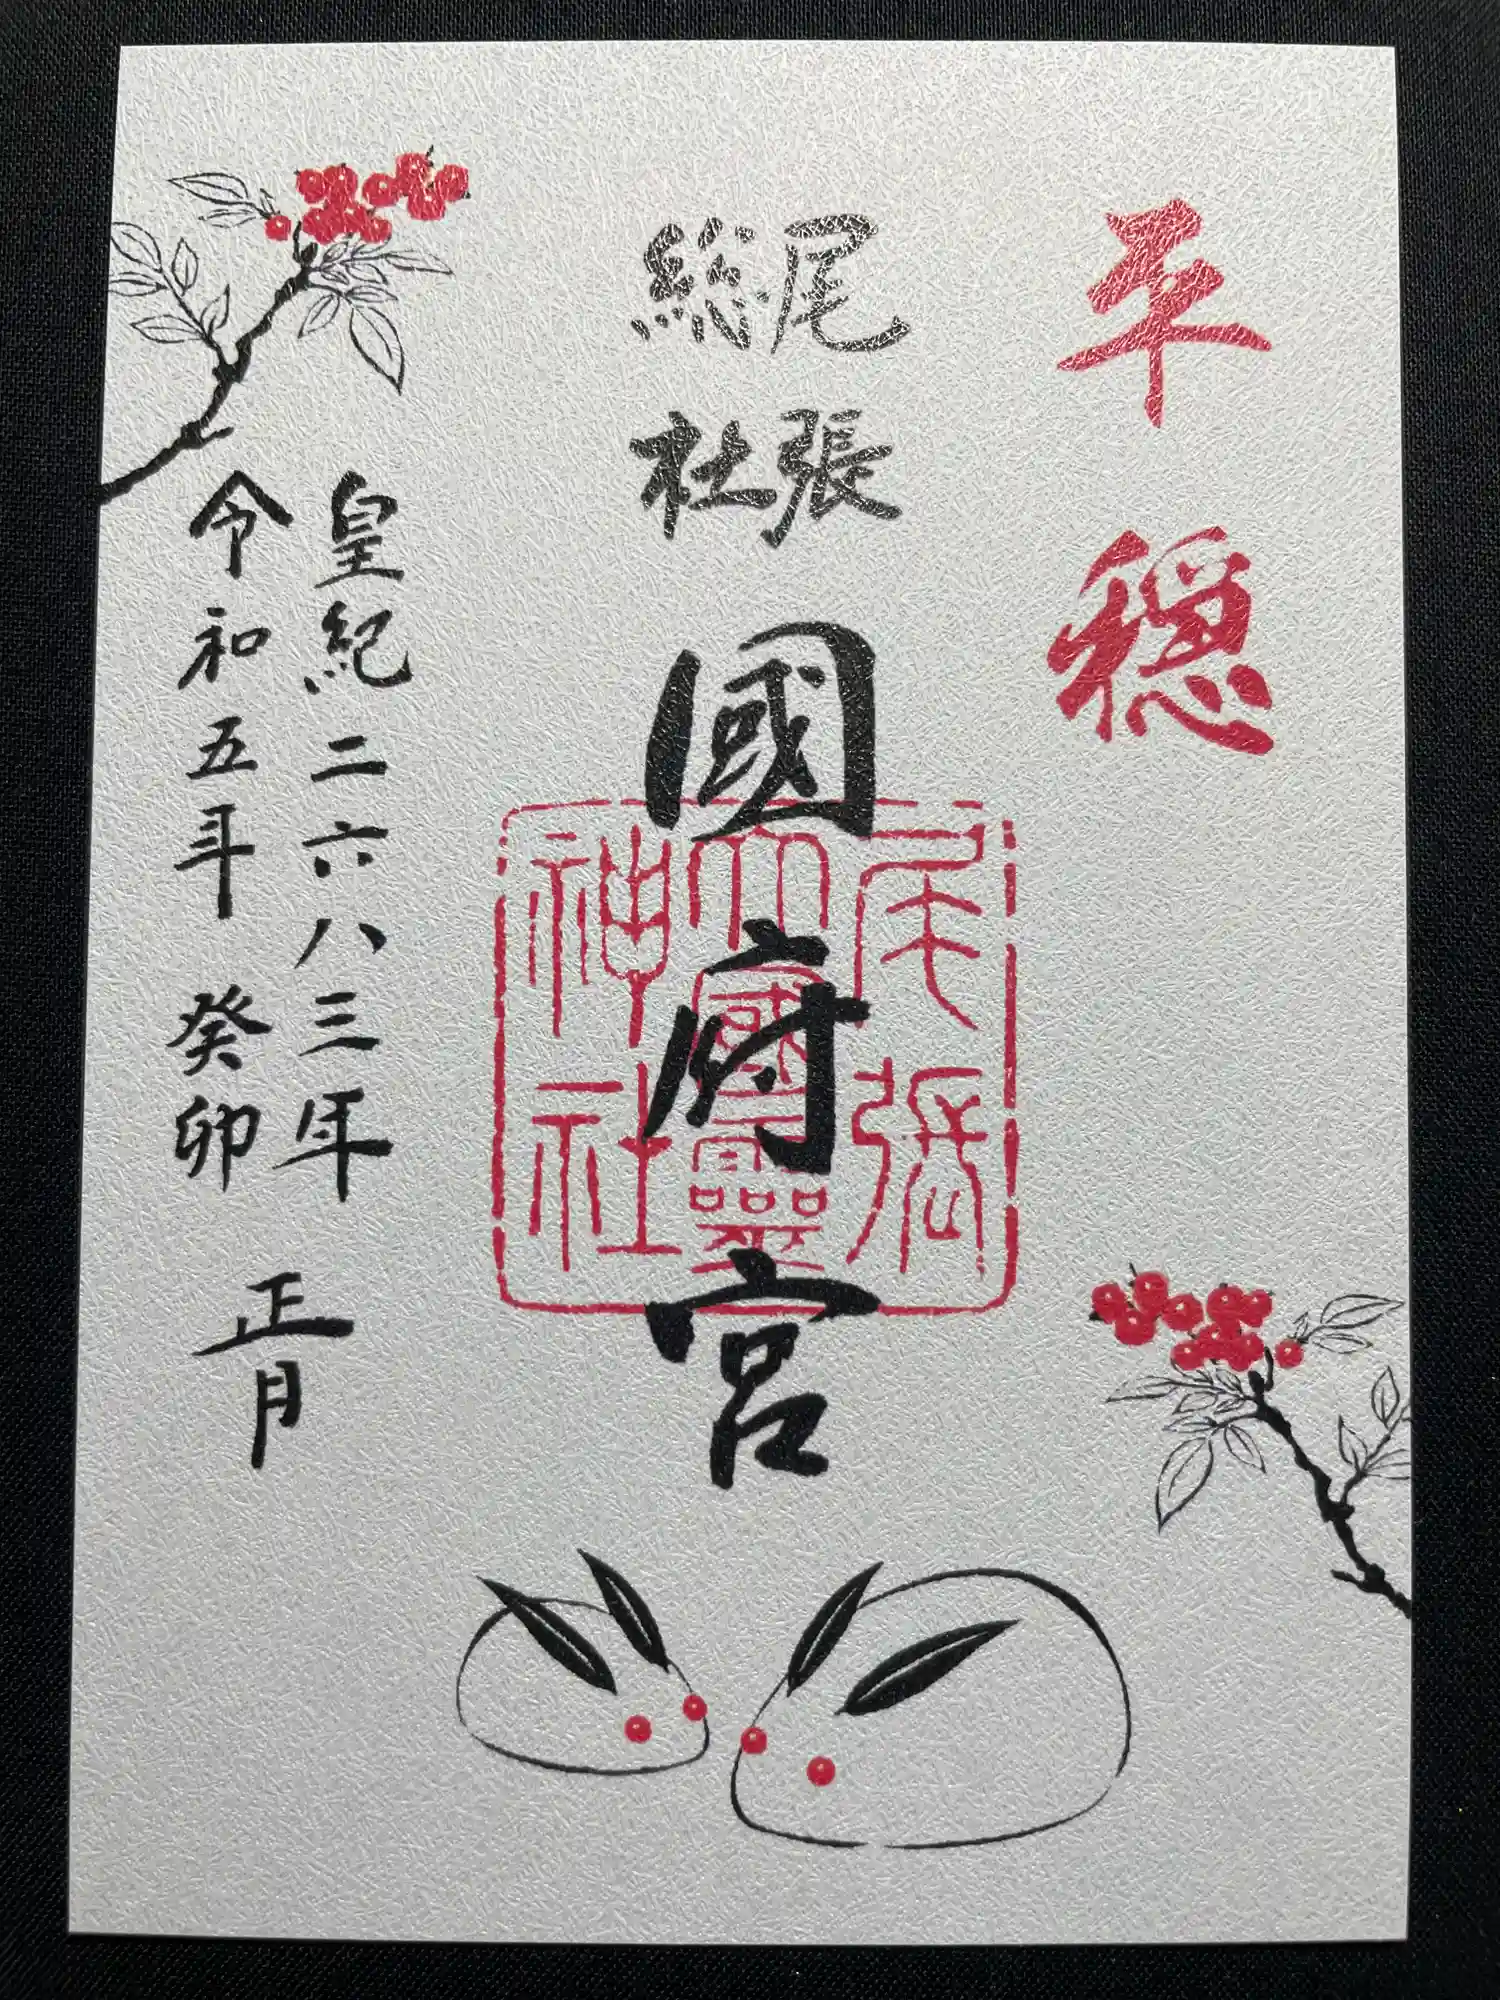 平穏
尾張
総社
國府宮
尾張
大國霊
神社
皇紀二六八三年
令和五年 癸卯
正月